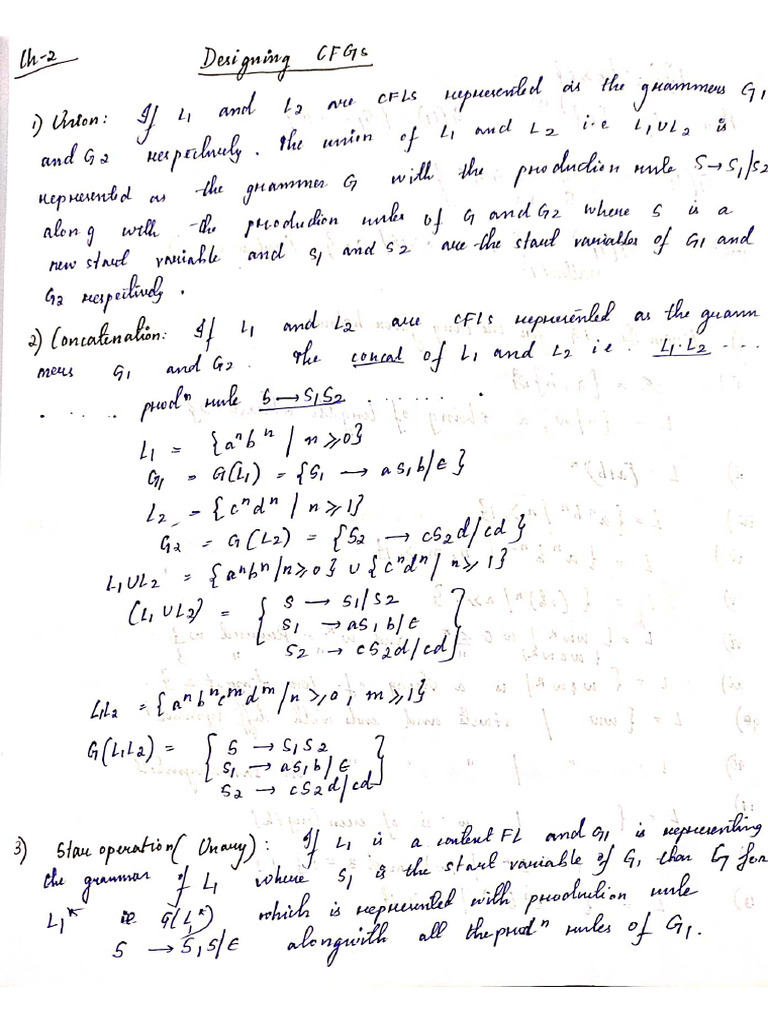 Ch-2 Designing CFGs
1) Union: If L1 and L2 are CFLs represented as the grammers G1
and G2 respectively. The union of L1 and L2 i.e L1UL2 is
represented as the grammer G with the production rule S→S1/S2
along with the production rules of G and G2 where S is a
new start variable and S1 and S2 are the start variables of G1 and
G2 respectively.
2) Concatenation: If L1 and L2 are CFLs represented as the gramm
mers G1 and G2. The concat of L1 and L2 i.e. L1.L2 ....
. .... prodⁿ rule S→S1S2 ....... .
L1 = {aⁿbⁿ | n≥0}
G1 = G(L1) = {S1 → aS1b/ε}
L2 = {cⁿdⁿ | n≥1}
G2 = G(L2) = {S2 → cS2d/cd}
L1UL2 = {aⁿbⁿ/n≥0} U {cⁿdⁿ/ n≥1}
(L1UL2) = { S → S1/S2
S1 → aS1b/ε
S2 → cS2d/cd }
L1L2 = {aⁿbⁿcᵐdᵐ/n≥0, m≥1}
G(L1L2) = { S → S1S2
S1 → aS1b/ε
S2 → cS2d/cd }
3) Star operation (Unary): If L1 is a context FL and G1 is representing
the grammar of L1 where S1 is the start variable of G1 than G for
L1* ie G(L1*) which is represented with production rule
S → S1S/ε alongwith all the prodⁿ rules of G1.